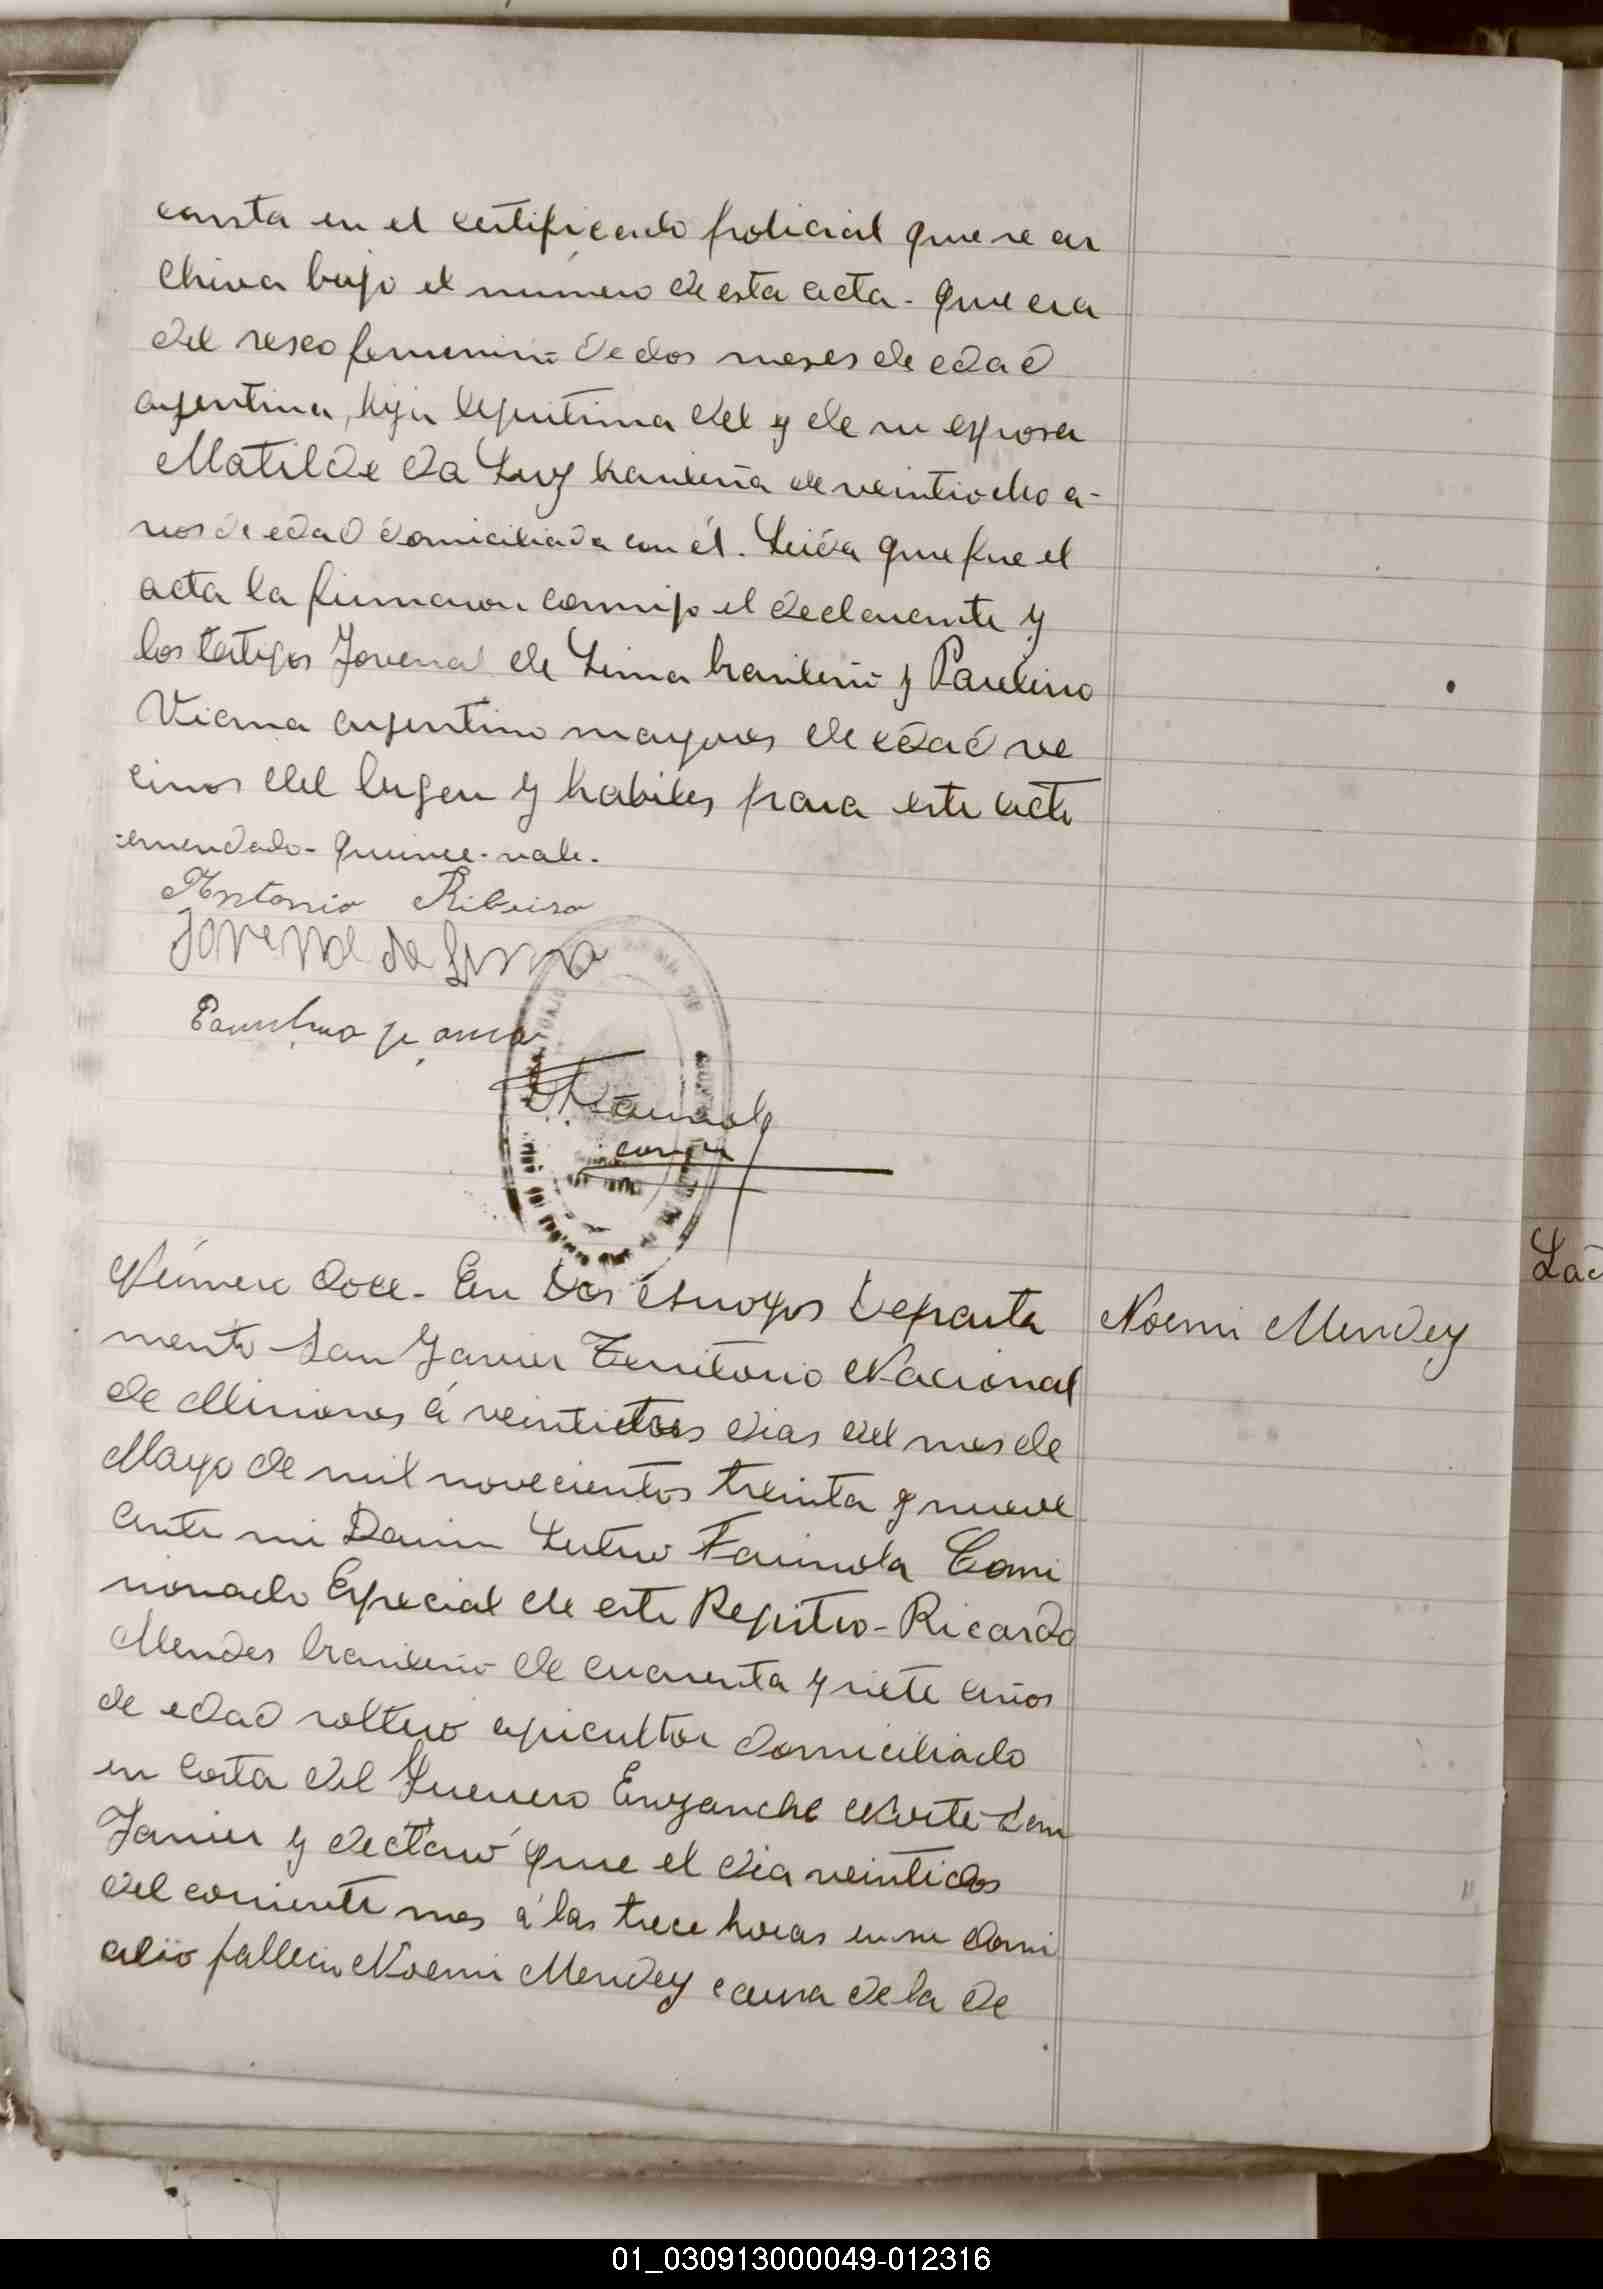 consta en el certificado policial que se ar
chiva bajo el número de esta acta - que era
del sexo femenino de dos meses de edad
argentina, hija legitima del y de su esposa
Matilde da Luz brasileña de veintiocho a-
ños de edad domiciliada con él. Leida que fue el
acta la firmaron conmigo el declarante y
los testigos Jovenal de Lima brasileño y Paulino
Viana argentino mayores de edad ve
cinos del lugar y habiles para este acto
emendado - quince - vale.
Antonio Ribeiro
Jovenal de Lima
Número doce - En Dos Arroyos Departa
mento San Javier Territorio Nacional
de Misiones á veintitres dias del mes de
Mayo de mil novecientos treinta y nueve
ante mi Lutero Comi
sionado Especial de este Registro - Ricardo
Mendes brasileño de cuarenta y siete años
de edad soltero agricultor domiciliado
en Costa del Ensanche Norte San
Javier y declaró que el dia veintidos
del corriente mes á las trece horas en su domi
cilio fallecio Noemi Mendez causa de la de
Noemi Mendez
01_030913000049-012316